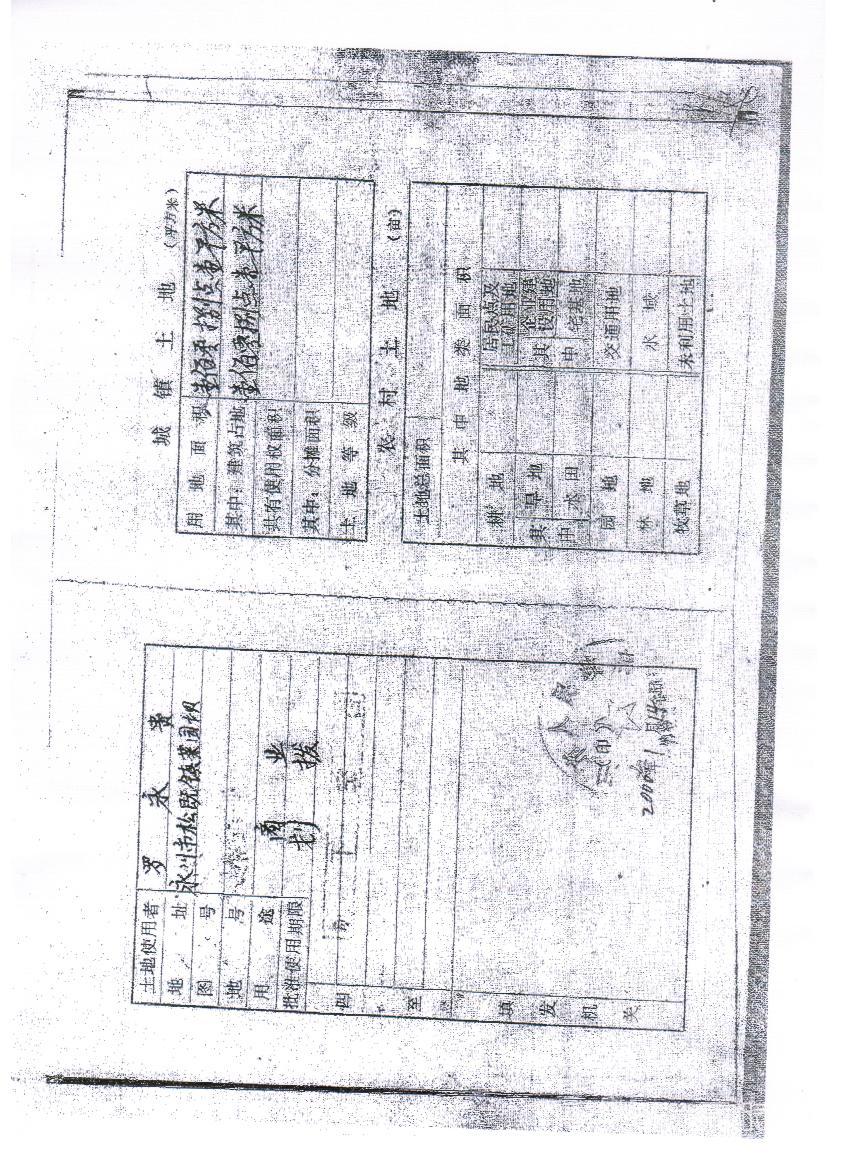 土地使用者 罗永贵
地址 永川市松既镇菜园坝
图号
地号
用途 商业
批准使用期限 划拨
四
至
填
发
机
关
人民
(印)
2000年1月14
城镇土地 (平方米)
用地面积 壹佰零捌点壹平方米
其中：建筑占地 壹佰零捌点壹平方米
共有使用权面积
其中：分摊面积
土地等级
农村土地 (亩)
土地总面积
其中地类面积
耕地 居民点及工矿用地
其中 旱地 其中 企业建设用地
水田 宅基地
园地 交通用地
林地 水域
牧草地 未利用土地